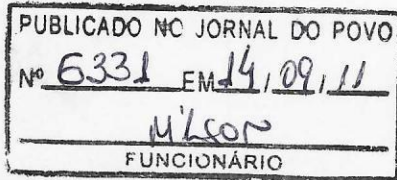 PUBLICADO NO JORNAL DO POVO
Nº 6331 EM 14, 09, 11
FUNCIONÁRIO